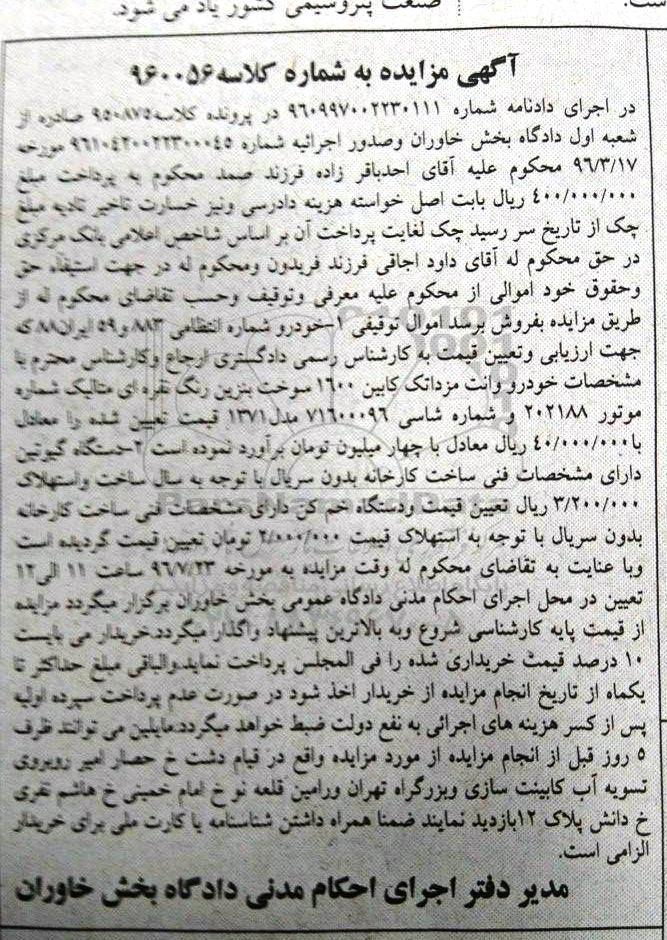 صنعت پتروشیمی کشور یاد می شود.
است.
آگهی مزایده به شماره کلاسه ۹۶۰۰۵۶
در اجرای دادنامه شماره ۹۶۰۹۹۷۰۰۲۲۳۰۱۱۱ در پرونده کلاسه۹۵۰۸۷۵ صادره از
شعبه اول دادگاه بخش خاوران وصدور اجرائیه شماره ۹۶۱۰۴۲۰۰۲۲۳۰۰۰۴۵ مورخه
۹۶/۳/۱۷ محکوم علیه آقای احدباقر زاده فرزند صمد محکوم به پرداخت مبلغ
۴۰۰/۰۰۰/۰۰۰ ریال بابت اصل خواسته هزینه دادرسی ونیز خسارت تاخیر تادیه مبلغ
چک از تاریخ سر رسید چک لغایت پرداخت آن بر اساس شاخص اعلامی بانک مرکزی
در حق محکوم له آقای داود اجاقی فرزند فریدون ومحکوم له در جهت استیفاء حق
وحقوق خود اموالی از محکوم علیه معرفی وتوقیف وحسب تقاضای محکوم له از
طریق مزایده بفروش برسد اموال توقیفی ۱-خودرو شماره انتظامی ۸۸۳ و۵۹ ایران۸۸ که
جهت ارزیابی وتعیین قیمت به کارشناس رسمی دادگستری ارجاع وکارشناس محترم با
مشخصات خودرو وانت مزداتک کابین ۱۶۰۰ سوخت بنزین رنگ نقره ای متالیک شماره
موتور ۲۰۲۱۸۸ و شماره شاسی ۷۱۶۰۰۰۹۶ مدل۱۳۷۱ قیمت تعیین شده را معادل
با۴۰/۰۰۰/۰۰۰ ریال معادل با چهار میلیون تومان برآورد نموده است ۲-دستگاه گیوتین
دارای مشخصات فنی ساخت کارخانه بدون سریال با توجه به سال ساخت واستهلاک
۳/۲۰۰/۰۰۰ ریال تعیین قیمت ودستگاه خم کن دارای مشخصات فنی ساخت کارخانه
بدون سریال با توجه به استهلاک قیمت ۲/۰۰۰/۰۰۰ تومان تعیین قیمت گردیده است
وبا عنایت به تقاضای محکوم له وقت مزایده به مورخه ۹۶/۷/۲۳ ساعت ۱۱ الی۱۲
تعیین در محل اجرای احکام مدنی دادگاه عمومی بخش خاوران برگزار میگردد مزایده
از قیمت پایه کارشناسی شروع وبه بالاترین پیشنهاد واگذار میگردد.خریدار می بایست
۱۰ درصد قیمت خریداری شده را فی المجلس پرداخت نماید.والباقی مبلغ حداکثر تا
یکماه از تاریخ انجام مزایده از خریدار اخذ شود در صورت عدم پرداخت سپرده اولیه
پس از کسر هزینه های اجرائی به نفع دولت ضبط خواهد میگردد.مایلین می توانند ظرف
۵ روز قبل از انجام مزایده از مورد مزایده واقع در قیام دشت خ حصار امیر روبروی
تسویه آب کابینت سازی وبزرگراه تهران ورامین قلعه نو خ امام خمینی خ هاشم نفری
خ دانش پلاک ۱۲بازدید نمایند ضمنا همراه داشتن شناسنامه یا کارت ملی برای خریدار
الزامی است.
مدیر دفتر اجرای احکام مدنی دادگاه بخش خاوران